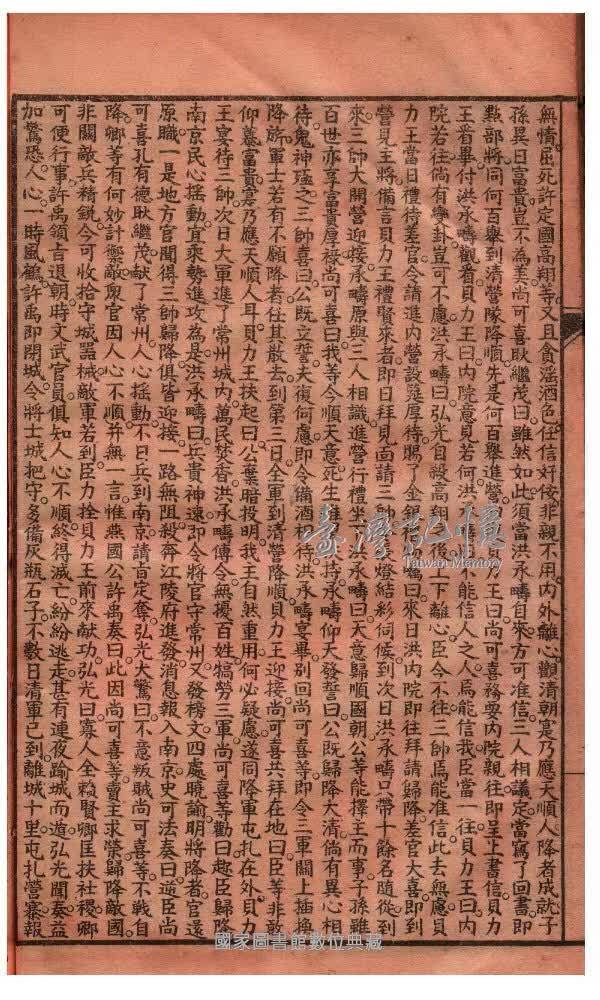 無情出死許定國高翔等又且貪滛酒色任信奸侫非親不用內外離心觀清朝寔乃應天順人降者成就子
孫異日富貴豈不為美尚可喜耿繼茂曰雖然如此須當洪承疇自來方可准信三人相議定當寫了回書即
點部將同何百舉到清營隊降順先是何百舉進營貝力王曰尚可喜務要內院親往即呈上書信貝力
王看畢付洪承疇觀看貝力王曰內院意見若何洪承疇曰不能信人之人焉能信我臣當一往貝力王曰內
院若往倘有變卦豈可不慮洪承疇曰弘光自殺高翔後上下離心臣今不往三帥焉能准信此去無慮貝
力王當日禮待差官令請進內營設筵厚待賜了金銀囑曰來日洪內院即往拜請歸降差官大喜即到
營見王將備言貝力王禮賢來者即日拜見面請三帥燈結彩伺候到次日洪承疇只帶十餘名隨從到
來三帥大開營迎接承疇原與三人相識進營行禮坐承疇曰天意歸順國朝公等能擇王而事子孫雖
百世亦享富貴厚禄尚可喜曰我等今順天意死生維持承疇仰天發誓曰公既歸降大清倘有異心相
待鬼神殛之三帥喜曰公既立誓夫復何慮即令備酒相待洪承疇宴畢別回尚可喜等即令三軍關上插換
降旂軍士若有不願降者任其散去到第三日全軍到清營降順貝力王迎接尚可喜共拜在地曰臣等非敢
仰慕富貴寔乃應天順人耳貝力王扶起曰公棄暗投明我王自然重用何必疑慮遂同降軍屯扎在外貝力
王宴待三帥次日大軍進了常州城內萬民焚香洪承疇傳令無擾百姓犒勞三軍尚可喜等勸曰趂臣歸降
南京民心摇動宜乘勢進攻為是洪承疇曰兵貴神速即令將官守常州又發榜文四處曉諭明將降者官還
原職一是地方官聞得三帥歸降俱皆迎接一路無阻殺奔江陵府進發消息報入南京史可法奏曰逆臣尚
可喜孔有德耿繼茂献了常州人心摇動不日兵到南京請旨定奪弘光大驚曰不意叛賊尚可喜等不戰自
降卿等有何妙計禦敵衆官因人心不順并無一言惟燕國公許禹奏曰此因尚可喜等賣主求榮歸降敵國
非關敵兵精銳今可收拾守城器械敵軍若到臣力拴貝力王前來献功弘光曰寡人全賴賢卿匡扶社稷卿
可便行事許禹領旨退朝時文武官員俱知人心不順終得滅亡紛紛逃走甚有連夜踰城而遁弘光聞奏益
加驚恐人心一時風鶴許禹即閉城令將士城把守多備灰瓶石子不數日清軍已到離城十里屯扎營寨報
臺灣記憶
Taiwan Memory
國家圖書館數位典藏